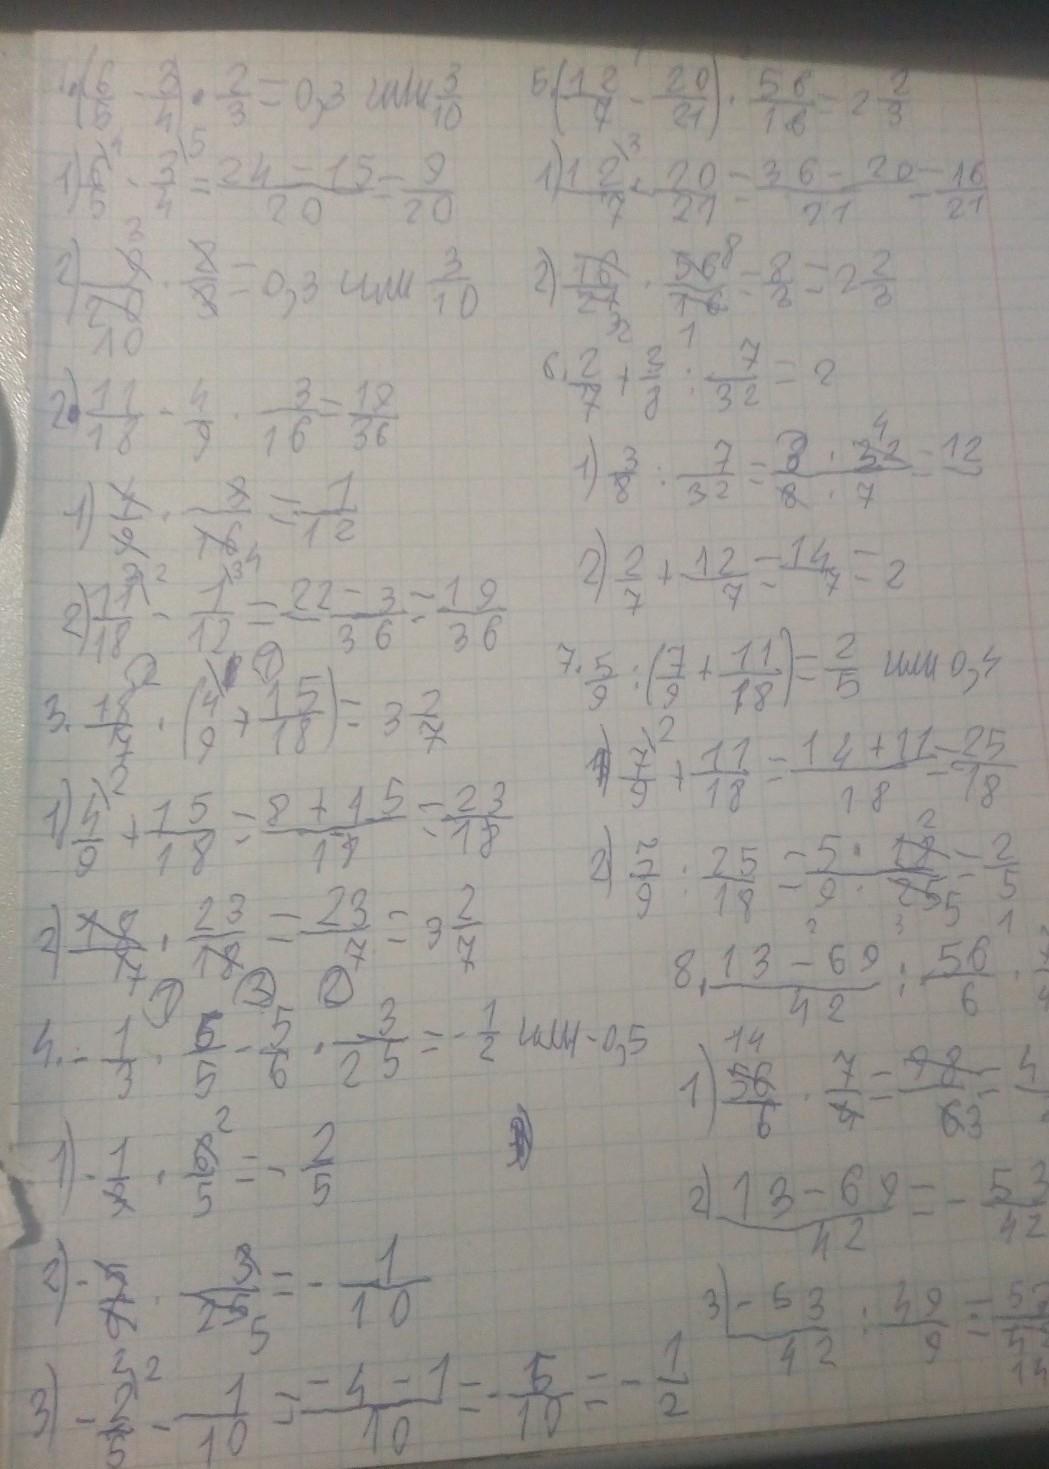 1. (6/5 - 3/4) · 2/3 = 0,3 или 3/10
1) 6/5 - 3/4 = (24 - 15)/20 = 9/20
2) 9/20 · 2/3 = 0,3 или 3/10
2. 11/18 - 4/9 · 3/16 = 19/36
1) 4/9 · 3/16 = 1/12
2) 11/18 - 1/12 = (22 - 3)/36 = 19/36
3. 18/7 · (4/9 + 15/18) = 3 2/7
1) 4/9 + 15/18 = (8 + 15)/18 = 23/18
2) 18/7 · 23/18 = 23/7 = 3 2/7
4. - 1/3 · 6/5 - 5/6 · 3/25 = - 1/2 или -0,5
1) - 1/3 · 6/5 = - 2/5
2) - 5/6 · 3/25 = - 1/10
3) - 2/5 - 1/10 = (-4 - 1)/10 = - 5/10 = - 1/2
5. (12/7 - 20/21) · 56/16 = 2 2/3
1) 12/7 - 20/21 = (36 - 20)/21 = 16/21
2) 16/21 · 56/16 = 8/3 = 2 2/3
6. 2/7 + 3/8 : 7/32 = 2
1) 3/8 : 7/32 = (3 · 32)/(8 · 7) = 12
2) 2/7 + 12/7 = 14/7 = 2
7. 5/9 : (7/9 + 11/18) = 2/5 или 0,4
1) 7/9 + 11/18 = (14 + 11)/18 = 25/18
2) : 25/18 = (5 · 18)/(9 · 25) = 2/5
8. (13 - 69)/42 : 56/6 ·
1) 56/6 · 7/4 = 98/6
2) (13 - 69)/42 = - 53/42
3) - 53/42 : 49/9 =